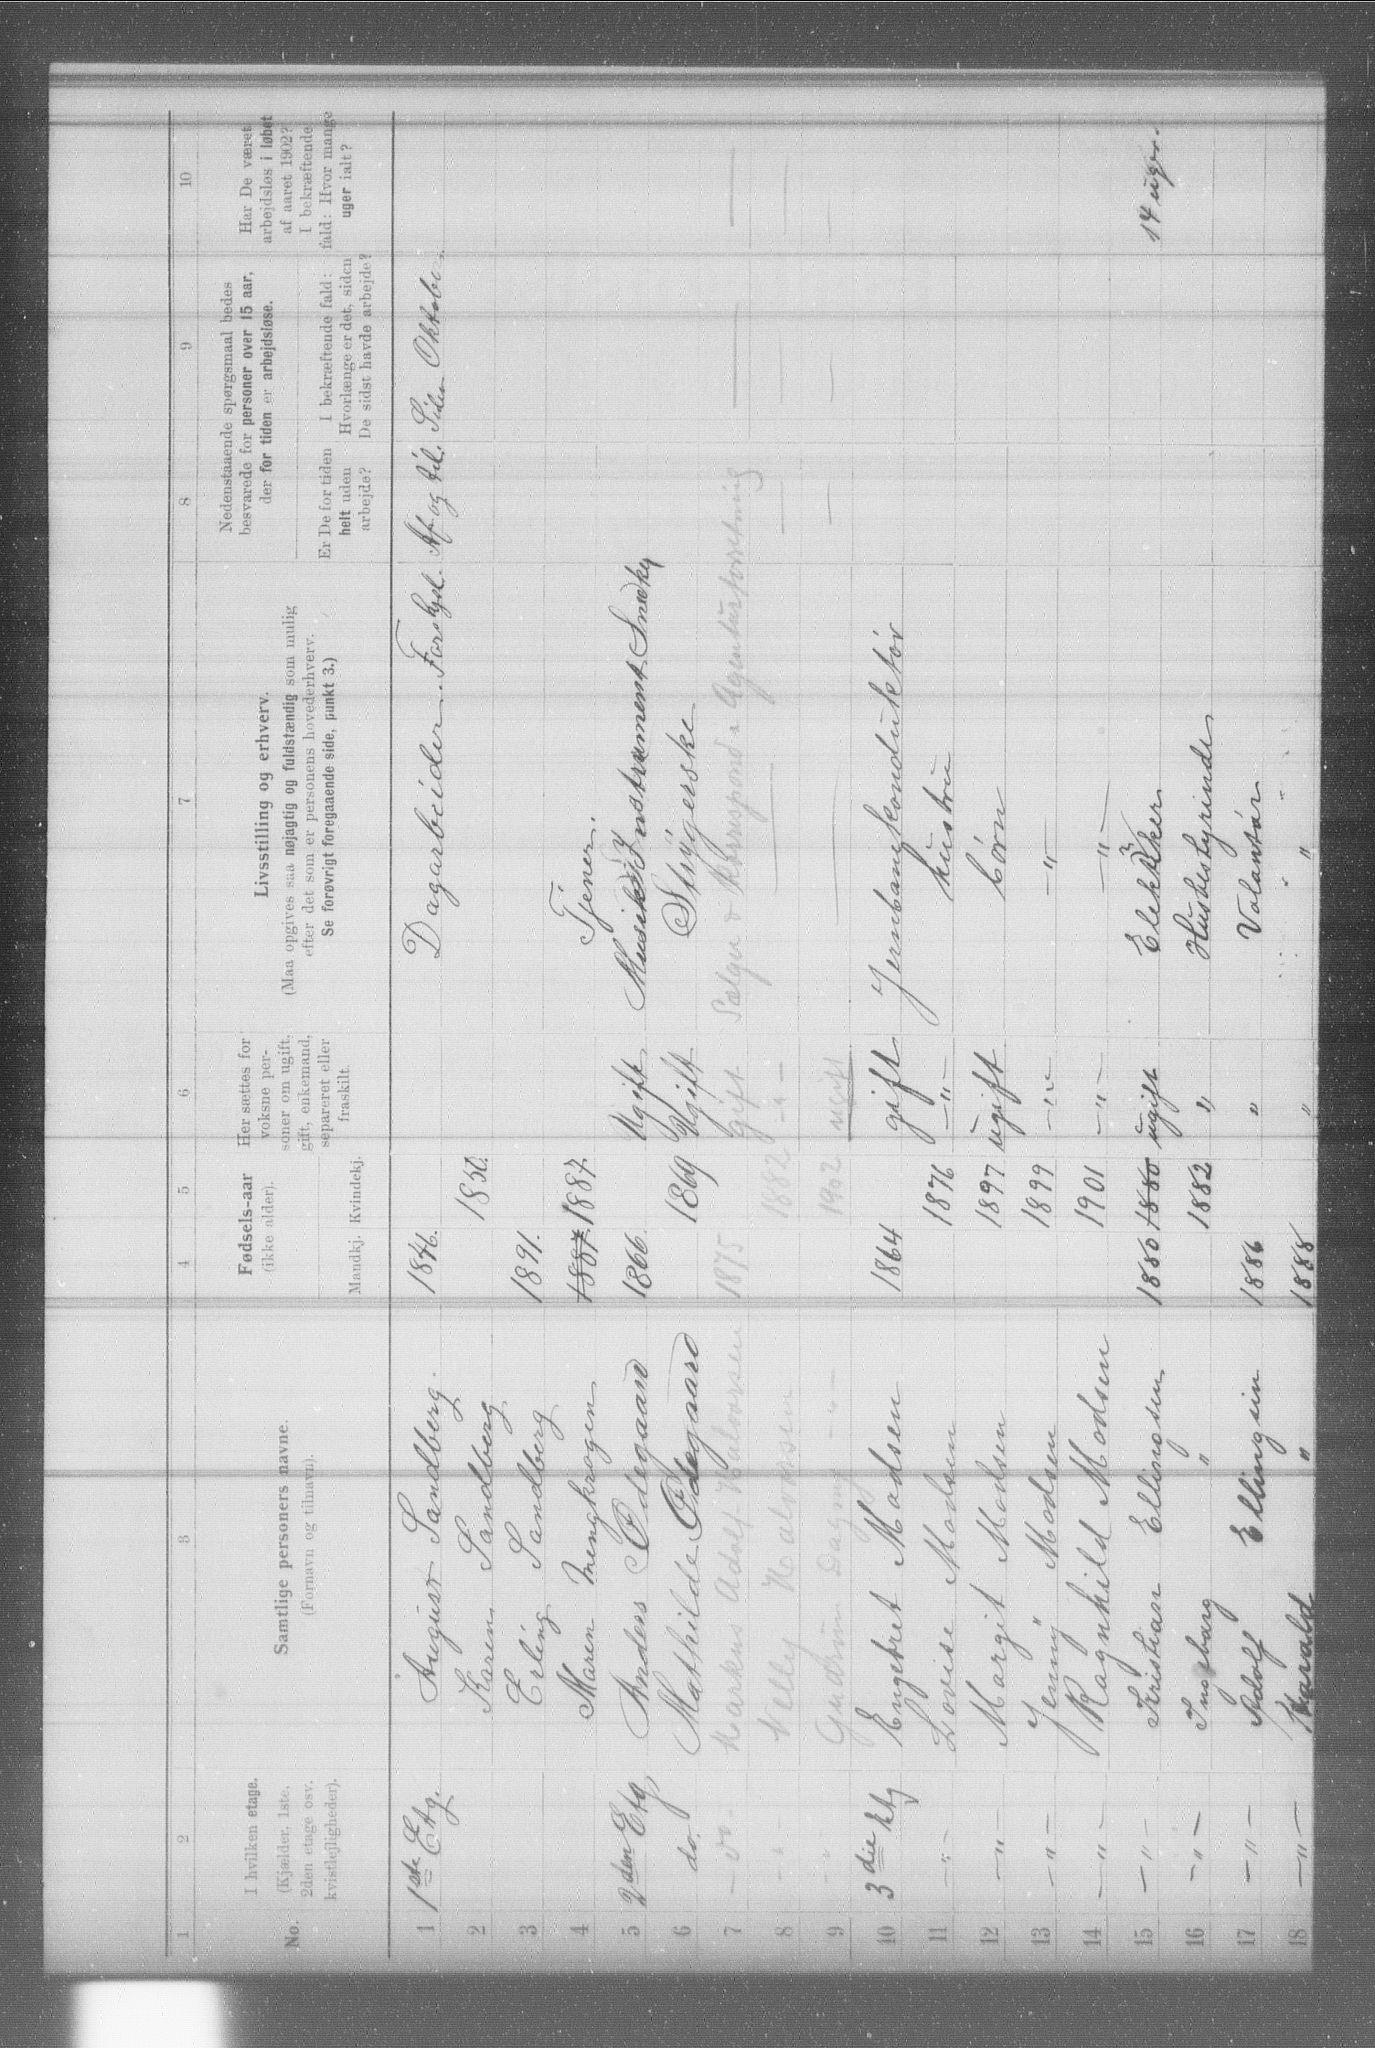 1 2 3 4 5 6 7 8 9 10
No.
I hvilken etage.
(Kjælder, 1ste.
2den etage osv.
kvistlejligheder).
Samtlige personers navne.
(Fornavn og tilnavn).
Fødsels-aar
(ikke alder).
Mandkj. Kvindekj.
Her sættes for
voksne per-
soner om ugift,
gift, enkemand,
separeret eller
fraskilt.
Livsstilling og erhverv.
(Maa opgives saa nøjagtig og fuldstændig som mulig
efter det som er personens hovederhverv.
Se forøvrigt foregaaende side, punkt 3.)
Nedenstaaende spørgsmaal bedes
besvarede for personer over 15 aar,
der for tiden er arbejdsløse.
Er De for tiden
helt uden
arbejde?
I bekræftende fald:
Hvorlænge er det, siden
De sidst havde arbejde?
Har De været
arbejdsløs i løbet
af aaret 1902?
I bekræftende
fald: Hvor mange
uger ialt?
1 1ste Etg. August Sandberg. 1846. Dagarbeider. Forskjel. Af og til. Siden Oktober.
2 Karen Sandberg 1850.
3 Erling Sandberg 1891.
4 Maren Mengkrogen 1887. 1887. Tjener.
5 2den Etg, Anders Ødegaard 1866. Ugift Musik Instrument Snedker
6 do. Mathilde Ødegaard 1869 Ugift Strygerske
7 - do - Markus Adolf Halvorsen 1875 Gift Sælger & Korrespond. Agenturforretning
8 - " - Nelly Halvorsen 1882 - " -
9 - " - Gudrun Dagny - " - 1902 ugift
10 3die Etg Engebret Madsen 1864 gift Jernbanekonduktør
11 - " - Lovise Madsen 1876 - " - hustru
12 - " - Margit Madsen 1897 ugift børn
13 - " - Jenny Madsen 1899 - " - - " -
14 - " - Ragnhild Madsen 1901 - " - - " -
15 - " - Kristian Ellingsen 1880 1880 ugift 14 uger.
16 - " - Ingeborg " 1882 " Husbestyrinde
17 - " - Adolf Ellingsen 1886 " Volantør
18 - " - Harald " 1888 " "